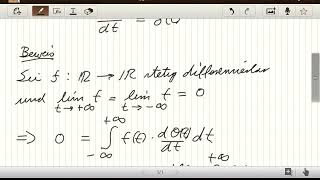 dt = δ(t)
Beweis
Sei f: ℝ → ℝ stetig differenzierbar
und lim f = lim f = 0
t→+∞ t→-∞
⇒ 0 = ∫_{-∞}^{+∞} f(t) · dΘ(t)/dt dt
+∞
1/1